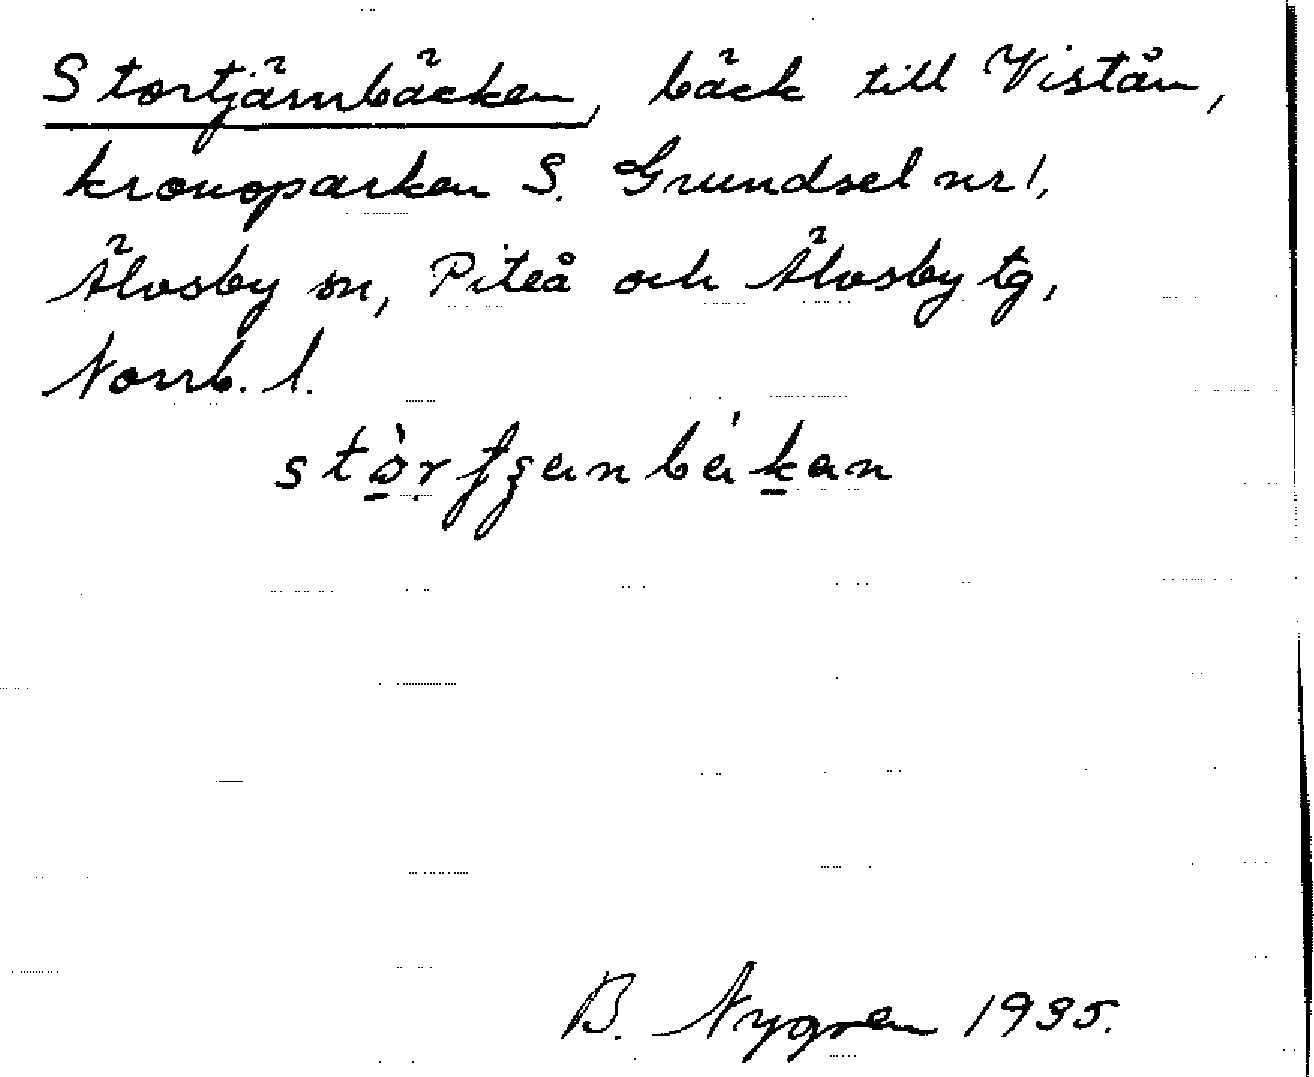 Stortjärnbäcken, bäck till Vistån,
kronoparken S. Grundsel nr 1,
Älvsby sn, Piteå och Älvsby tg,
Norrb. l.
B. Nygren 1935.